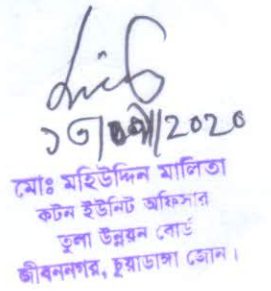 মোঃ মহিউদ্দিন মালিতা
কটন ইউনিট অফিসার
তুলা উন্নয়ন বোর্ড
জীবননগর, চুয়াডাঙ্গা জোন।